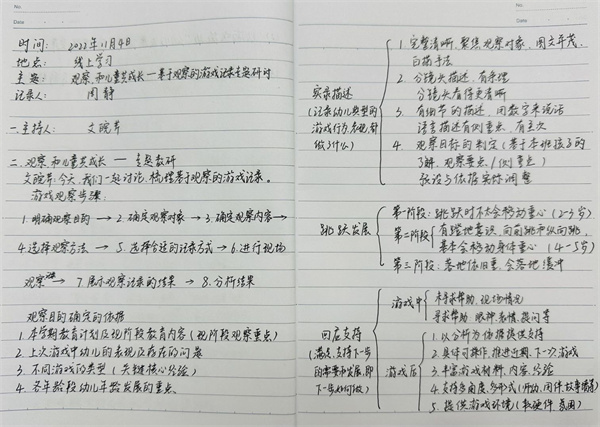 No.
Date
时间: 2022年11月4日
地点: 线上学习
主题: 观察和儿童共成长—基于观察的游戏记录主题研讨
记录人: 周静
一.主持人: 文晓芹
二.观察和儿童共成长 — 主题教研
文晓芹:今天,我们一起讨论,梳理基于观察的游戏记录。
游戏观察步骤:
1.明确观察目的→2.确定观察对象→3.确定观察内容→
4.选择观察方法→5.选择合适的记录方式→6.进行现场
观察→7.展示观察记录的结果→8.分析结果
观察目的确定的依据
1.本学期教育计划及现阶段教育内容(现阶段观察重点)
2.上次游戏中幼儿的表现及存在的问题
3.不同游戏的类型(关键核心经验)
4.各年龄段幼儿年龄发展的重点.
No.
Date
实录描述
(记录幼儿典型的
游戏行为表现,都
做了什么)
1.完整清晰,聚焦观察对象,图文并茂,
白描手法
2.分镜头描述,有条理
分镜头看得更清晰
3.有细节的描述,用数字来说话
语言描述有侧重点,有主次
4.观察目标的制定(基于本班孩子的
了解,观察要点/侧重点)
依据实际调整
跳跃发展
第一阶段:跳跃时不太会移动重心(2-3岁)
第二阶段
有蹬地意识,向前跳和纵向跳,
基本会移动身体重心(4-5岁)
第三阶段:落地依旧重,会落地缓冲
回应支持
(满足、支持下一步
的需要和发展,即
下一步如何做)
游戏中
未寻求帮助:现场情况
寻求帮助:眼神、表情、提问等
游戏后
1.以分析为依据提供支持
2.具体可操作,推进近期、下一次游戏
3.丰富游戏材料、内容、经验
4.支持多角度、多形式
5.提供游戏环境(软硬件、氛围)